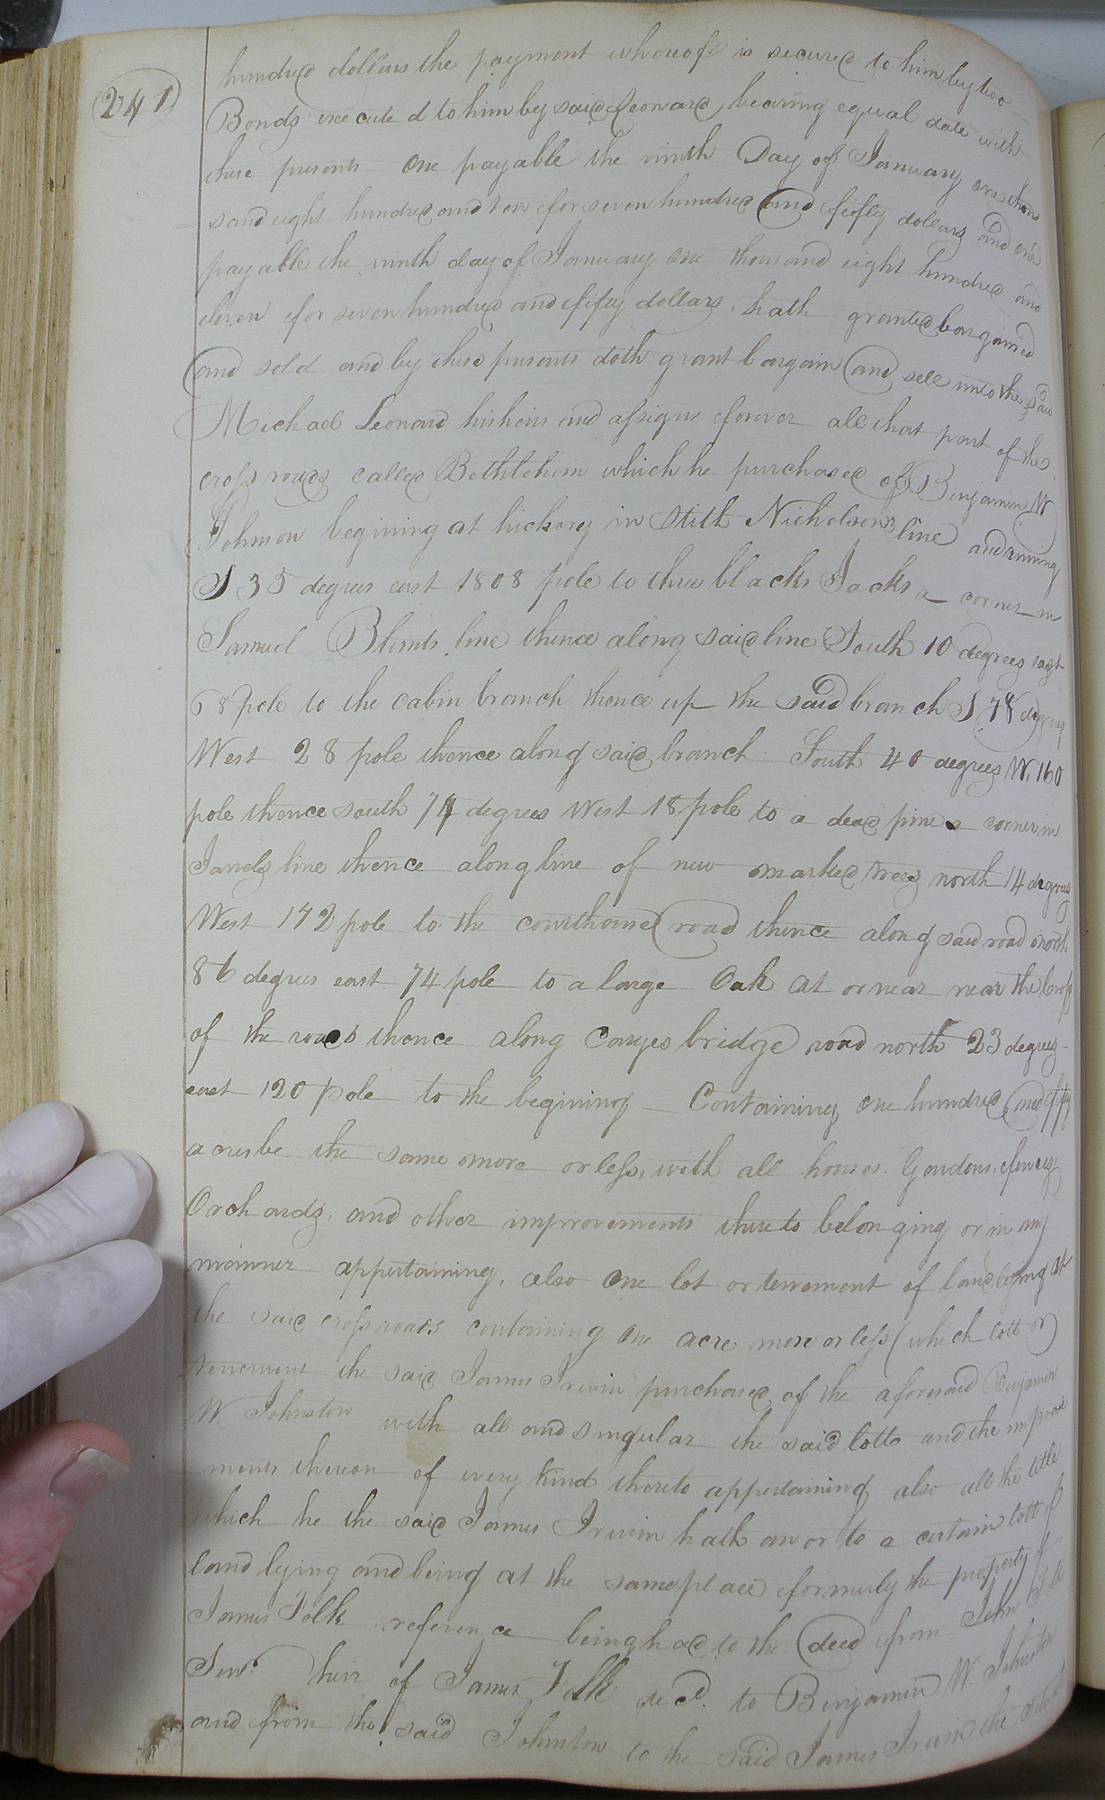 241
hundred dollars the payment whereof is secured to him by two
Bonds execute d to him by said Leonard, bearing equal date with
these presents One payable the ninth Day of January one thou
sand eight hundred and ten for seven hundred and fifty dollars and one
payable the ninth day of January one thousand eight hundred and
eleven for seven hundred and fifty dollars, hath granted bargained
and sold and by these presents doth grant bargain and sell unto the said
Michael Leonard his heirs and assigns forever all that part of the
cross roads called Bethlehem which he purchased of Benjamin W
Johnson begining at hickory in Stith Nicholsons line and runing
S 35 degrees east 1808 pole to three blacks Jacks a corner in
Samuel Blunts line thence along said line South 10 degrees east
68 pole to the cabin branch thence up the said branch S 78 degrees
West 28 pole thence along said branch South 40 degrees W. 160
pole thence south 74 degrees West 18 pole to a dead pine a corner in
Jands line thence along line of new marked trees north 14 degrees
West 172 pole to the courthouse road thence along said road north
86 degrees east 74 pole to a large Oak at or near near the Cross
of the roads thence along Conyes bridge road north 23 degrees
east 120 pole to the begining Containing one hundred and fifty
acres be the same more or less, with all houses. Gardens, fences,
Orchards, and other improvements thereto belonging or in any
manner appertaining, also one lot or tenement of land lying at
the said cross roads containing one acre more or less (which lott or
tenement the said James Irwin purchased of the aforesaid Benjamin
W Johnston with all and singular the said lotts and the improve
ments thereon of every kind thereto appertaining also all the title
which he the said James Irwin hath on or to a certain lott of
land lying and being at the same place formerly the property of
James Folk reference being had to the deed from John Folk
Senr. heir of James Folk decd. to Benjamin W. Johnston
and from the said Johnston to the said James Irwin the